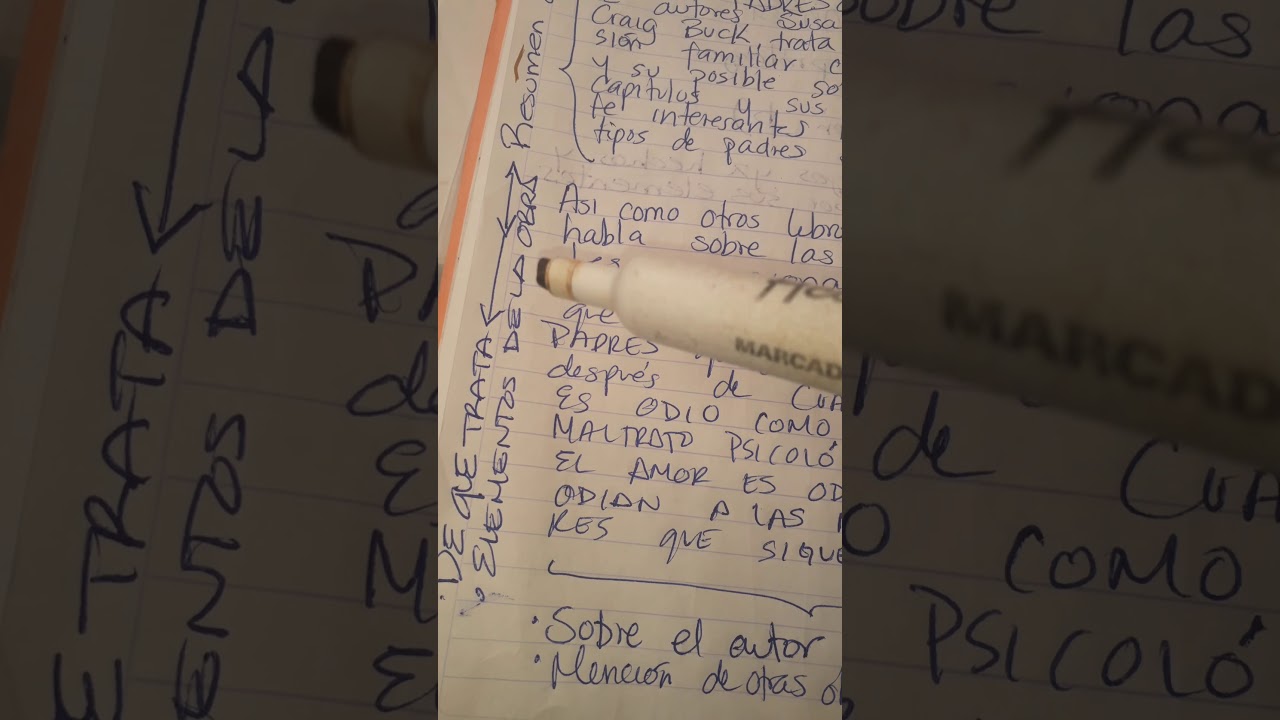 PADRES
autores Susa
Craig Buck, trata
sión familiar c
y su posible so
Capítulos y sus
fe interesantes
tipos de padres
Resumen
Asi como otros libro
habla sobre las
que
PADRES
después de CUA
ES ODIO COMO
MALTRATO PSICOLÓ
EL AMOR ES OD
ODIAN A LAS
RES QUE SIGUE
DE QUE TRATA
ELEMENTOS DE LA OBRA
MARCAD
• Sobre el autor
• Mención de otras